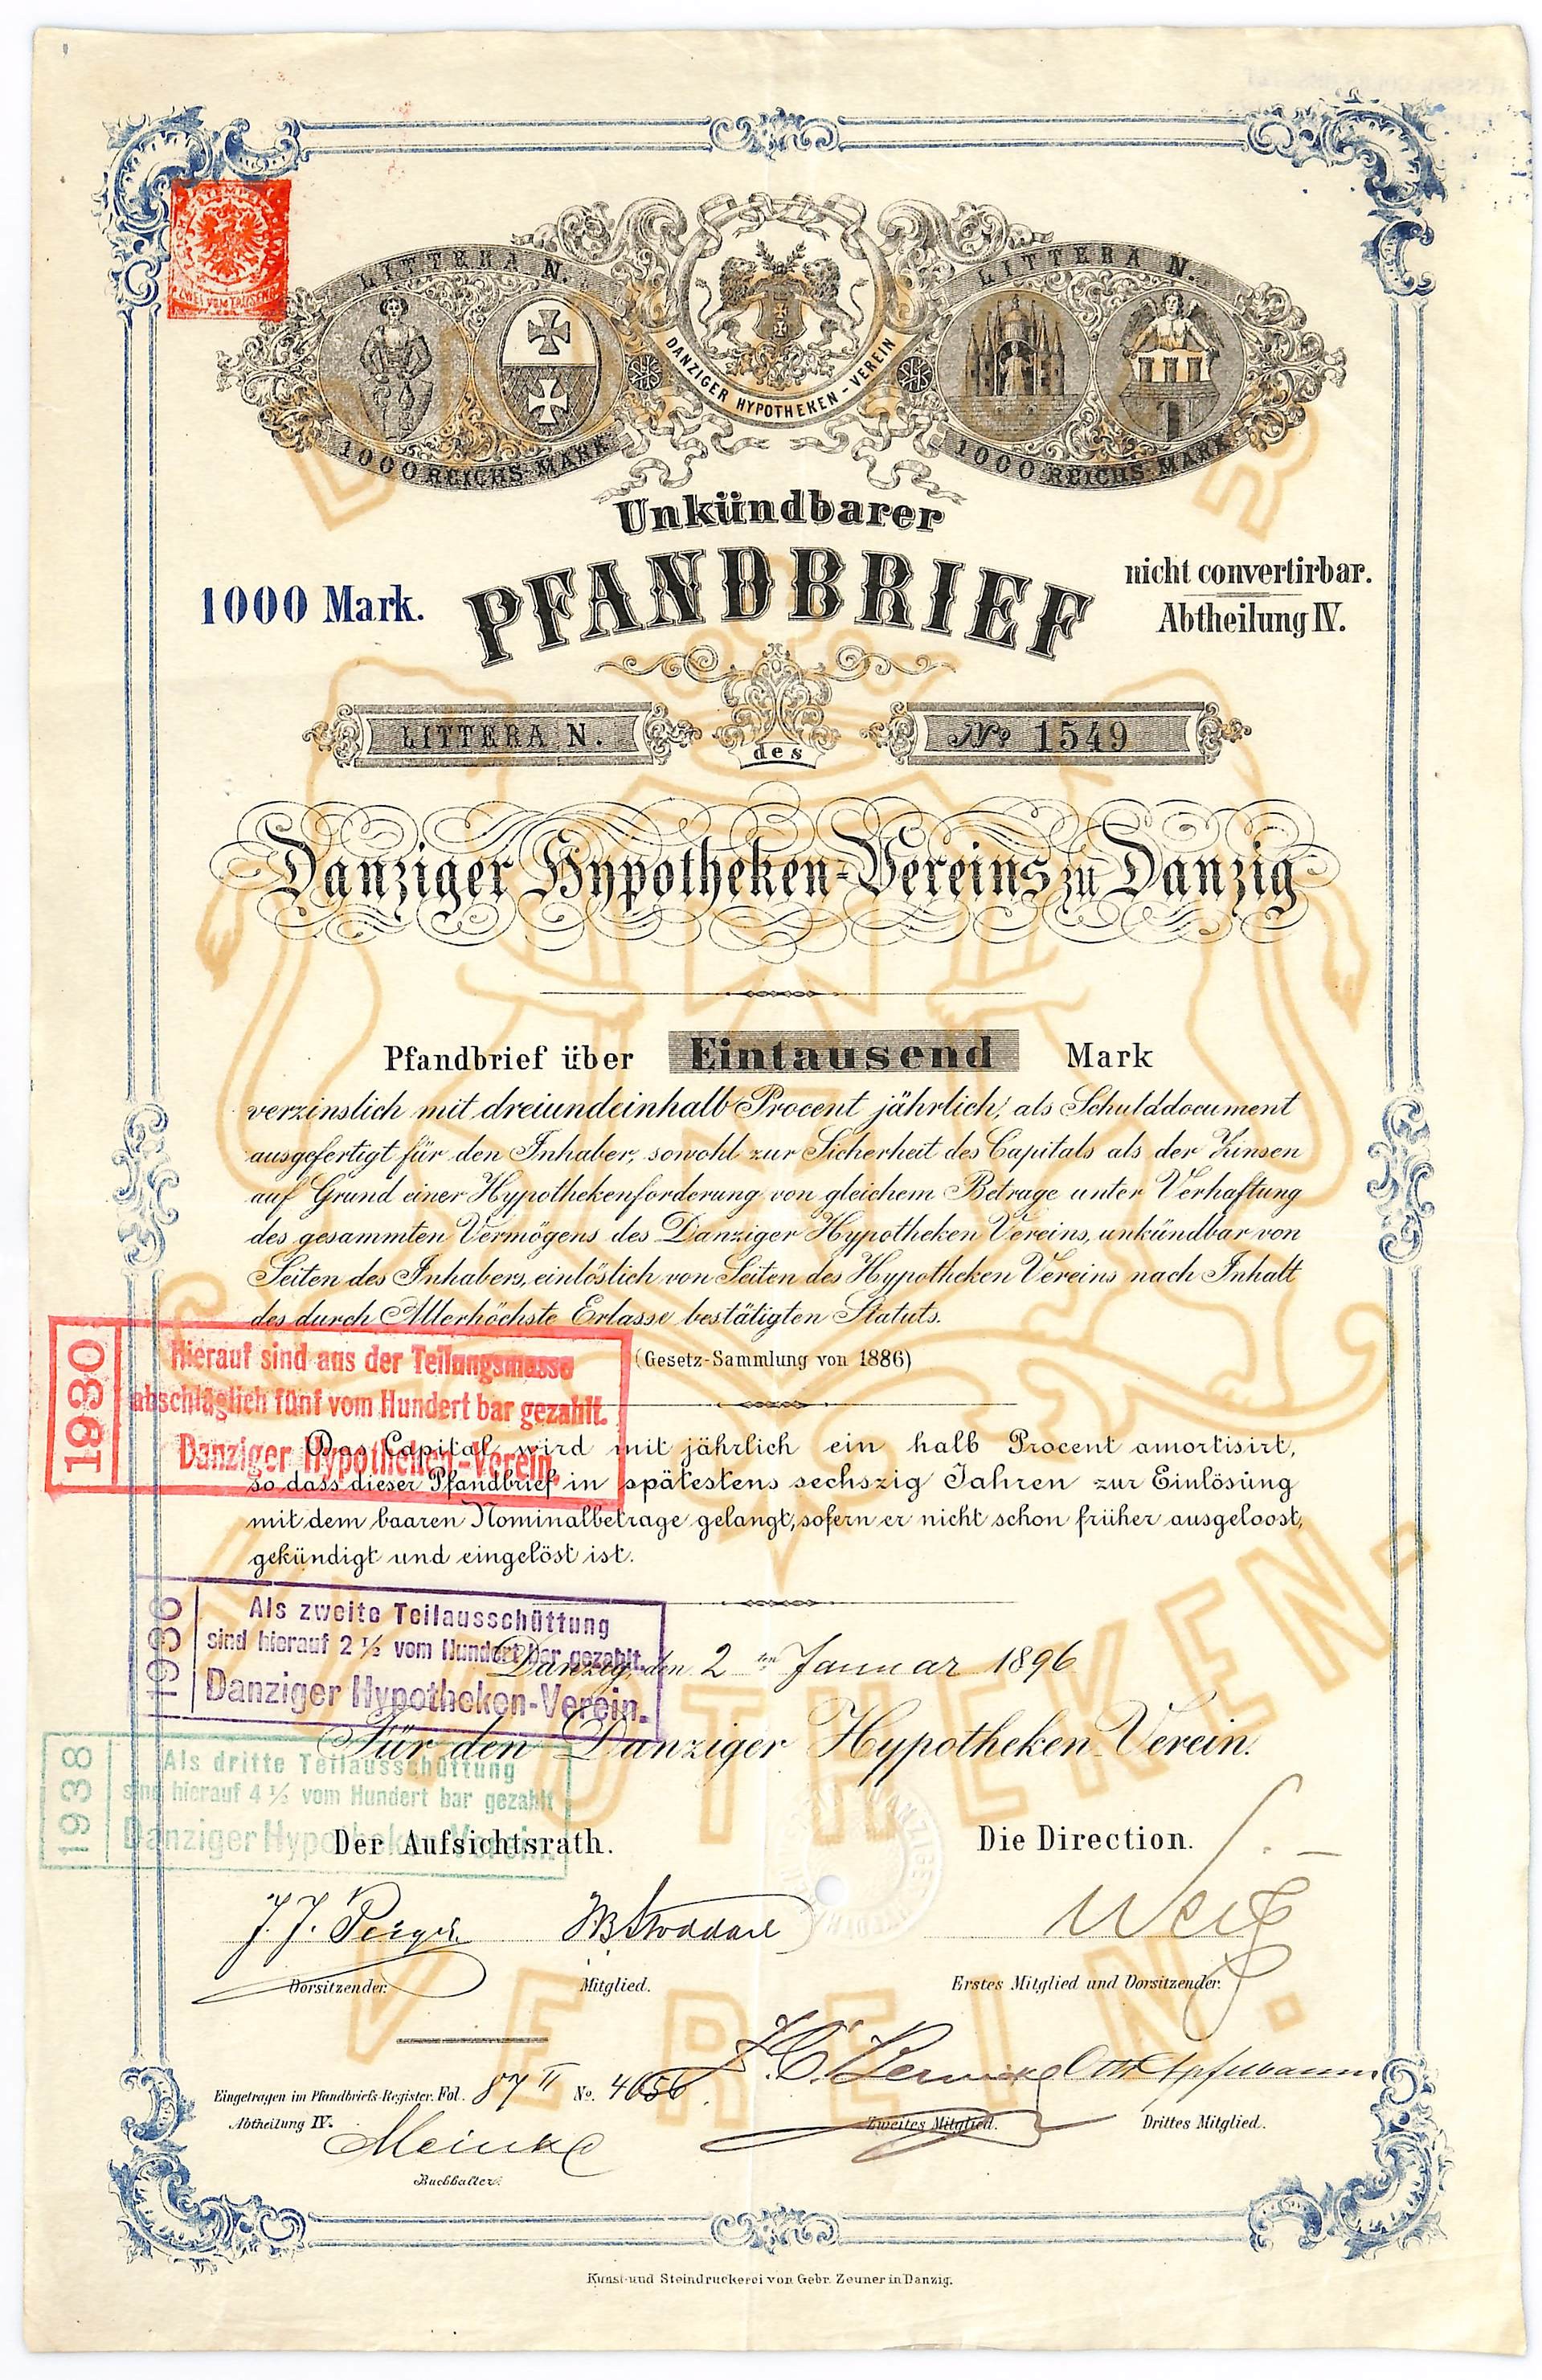 ZWEI VOM TAUSEND
LITTERA N.
1000 REICHS-MARK
DANZIGER HYPOTHEKEN-VEREIN
LITTERA N.
1000 REICHS-MARK
Unkündbarer
1000 Mark.
PFANDBRIEF
nicht convertirbar.
Abtheilung IV.
LITTERA N.
des
No 1549
Danziger Hypotheken-Vereins zu Danzig
Pfandbrief über Eintausend Mark
verzinslich mit dreiundeinhalb Procent jährlich, als Schulddocument
ausgefertigt für den Inhaber, sowohl zur Sicherheit des Capitals als der Zinsen
auf Grund einer Hypothekenforderung von gleichem Betrage unter Verhaftung
des gesammten Vermögens des Danziger Hypotheken Vereins, unkündbar von
Seiten des Inhabers, einlöslich von Seiten des Hypotheken Vereins nach Inhalt
des durch Allerhöchste Erlasse bestätigten Statuts.
(Gesetz-Sammlung von 1886)
1930
Hierauf sind aus der Teilungsmasse
abschläglich fünf vom Hundert bar gezahlt.
Danziger Hypotheken-Verein.
Das Capital wird mit jährlich ein halb Procent amortisirt,
so dass dieser Pfandbrief in spätestens sechszig Jahren zur Einlösung
mit dem baaren Nominalbetrage gelangt, sofern er nicht schon früher ausgeloost,
gekündigt und eingelöst ist.
1936
Als zweite Teilausschüttung
sind hierauf 2 ½ vom Hundert bar gezahlt.
Danziger Hypotheken-Verein.
Danzig, den 2ten Januar 1896
Für den Danziger Hypotheken-Verein.
1938
Als dritte Teilausschüttung
sind hierauf 4 ½ vom Hundert bar gezahlt
Danziger Hypotheken-Verein.
Der Aufsichtsrath.
Die Direction.
Vorsitzender.
Mitglied.
Erstes Mitglied und Vorsitzender.
Eingetragen im Pfandbriefs-Register. Fol. 87 II No. 4656
Abtheilung IV.
Meincke
Zweites Mitglied.
Drittes Mitglied.
Buchhalter.
Kunst-und Steindruckerei von Gebr. Zeuner in Danzig.
DANZIGER
HYPOTHEKEN-
VEREIN.